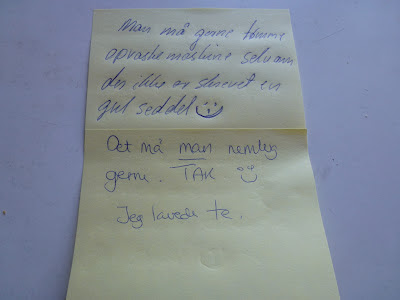 Man må gerne tømme
opvaskemaskine selvom
der ikke er skrevet en
gul seddel
Det må man nemlig
gerne. TAK
Jeg lavede te.